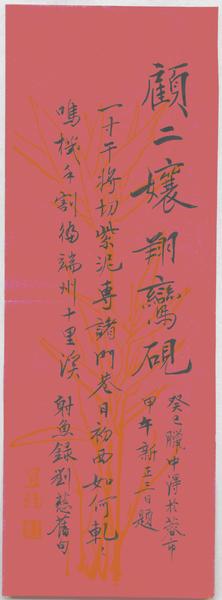 顧二孃翔鸞硯
癸巳臘中得於蓉市
甲午新正三日題
一寸干將切紫泥專諸門巷日初西如何軋〻
鳴機手割徧端州十里溪 射魚錄劉慈舊句